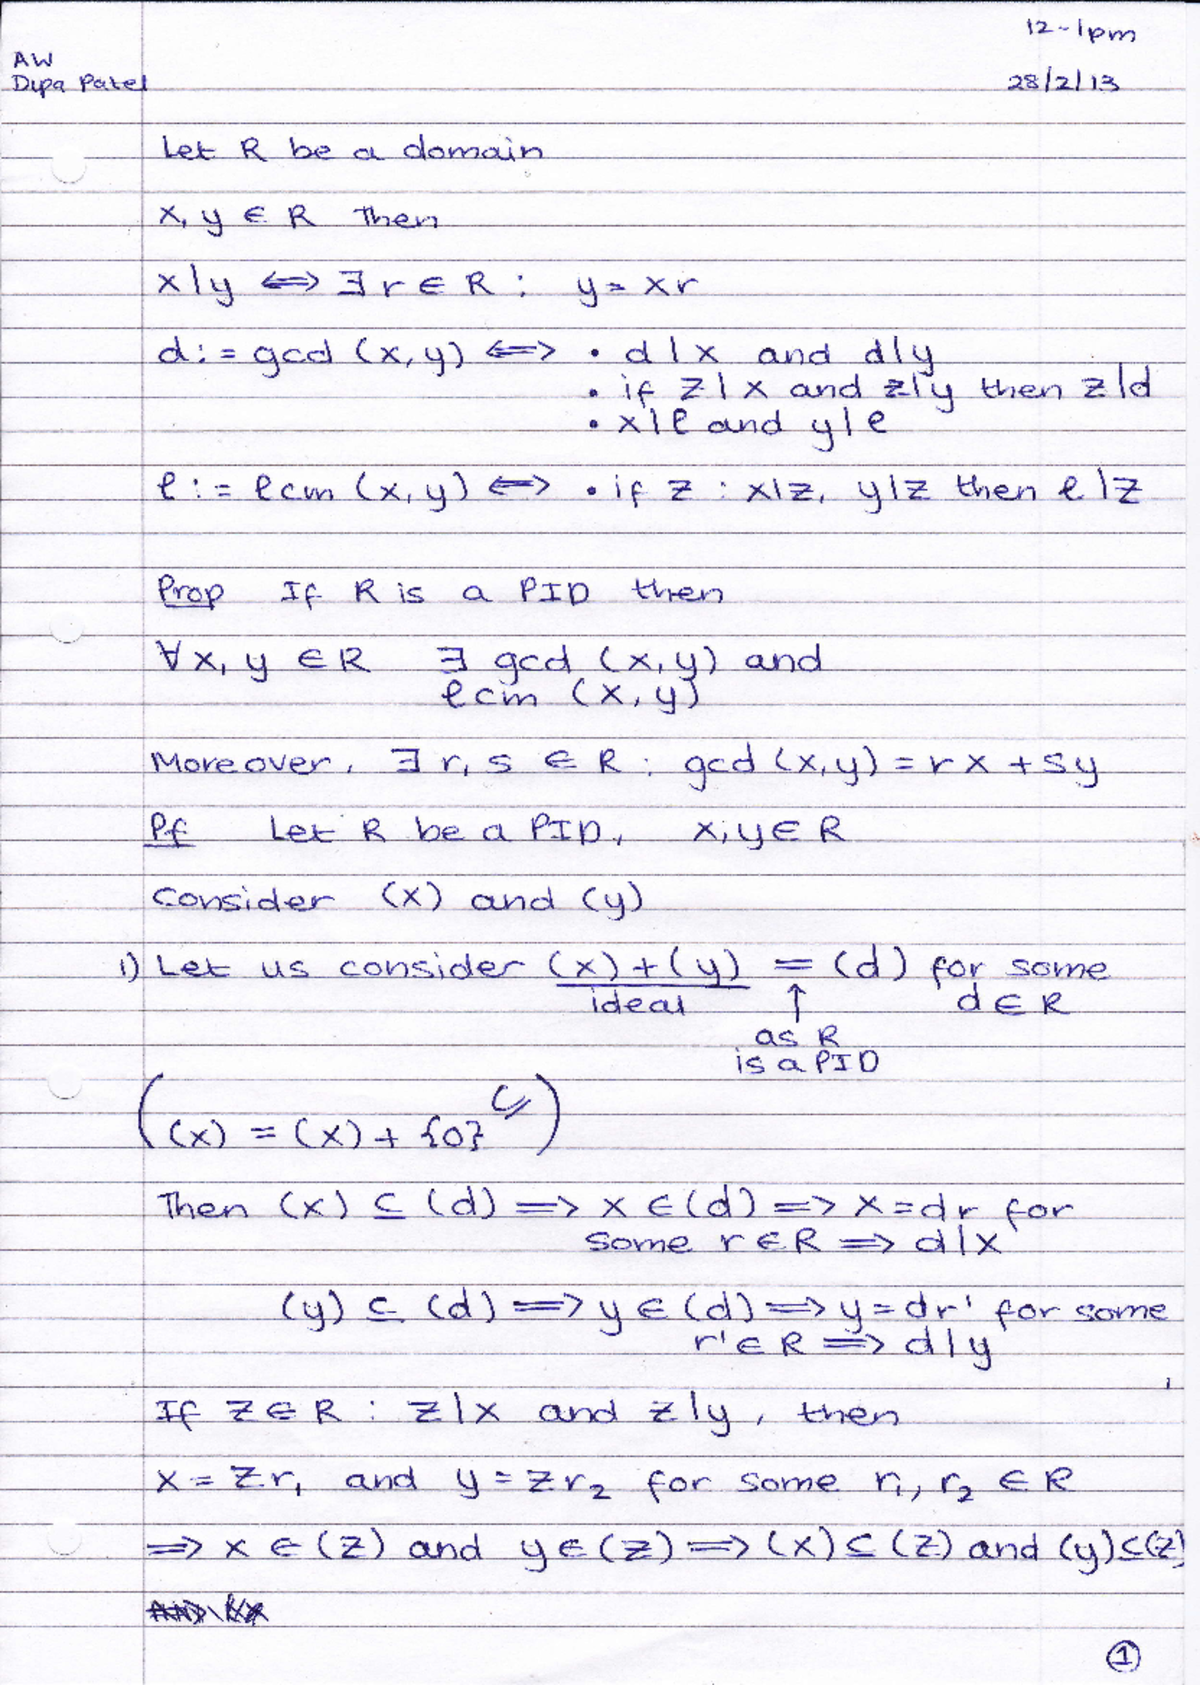 12-1pm
AW
Dipa Patel
28/2/13
Let R be a domain
x, y ∈ R Then
x|y ⟺ ∃ r ∈ R : y = xr
d := gcd (x, y) ⟺ • d | x and d|y
• if z | x and z|y then z|d
• x|ℓ and y|ℓ
ℓ := ℓcm (x, y) ⟺ • if z : x|z, y|z then ℓ|z
Prop If R is a PID then
∀ x, y ∈ R ∃ gcd (x, y) and
ℓcm (x, y)
Moreover, ∃ r, s ∈ R : gcd (x, y) = rx + sy
Pf Let R be a PID, x, y ∈ R
Consider (x) and (y)
1) Let us consider (x) + (y) = (d) for some
ideal ↑ d ∈ R
as R
is a PID
((x) = (x) + {0})
Then (x) ⊆ (d) ⟹ x ∈ (d) ⟹ x = dr for
some r ∈ R ⟹ d|x
(y) ⊆ (d) ⟹ y ∈ (d) ⟹ y = dr' for some
r' ∈ R ⟹ d|y
If z ∈ R : z|x and z|y, then
x = zr₁ and y = zr₂ for some r₁, r₂ ∈ R
⟹ x ∈ (z) and y ∈ (z) ⟹ (x) ⊆ (z) and (y) ⊆ (z)
1